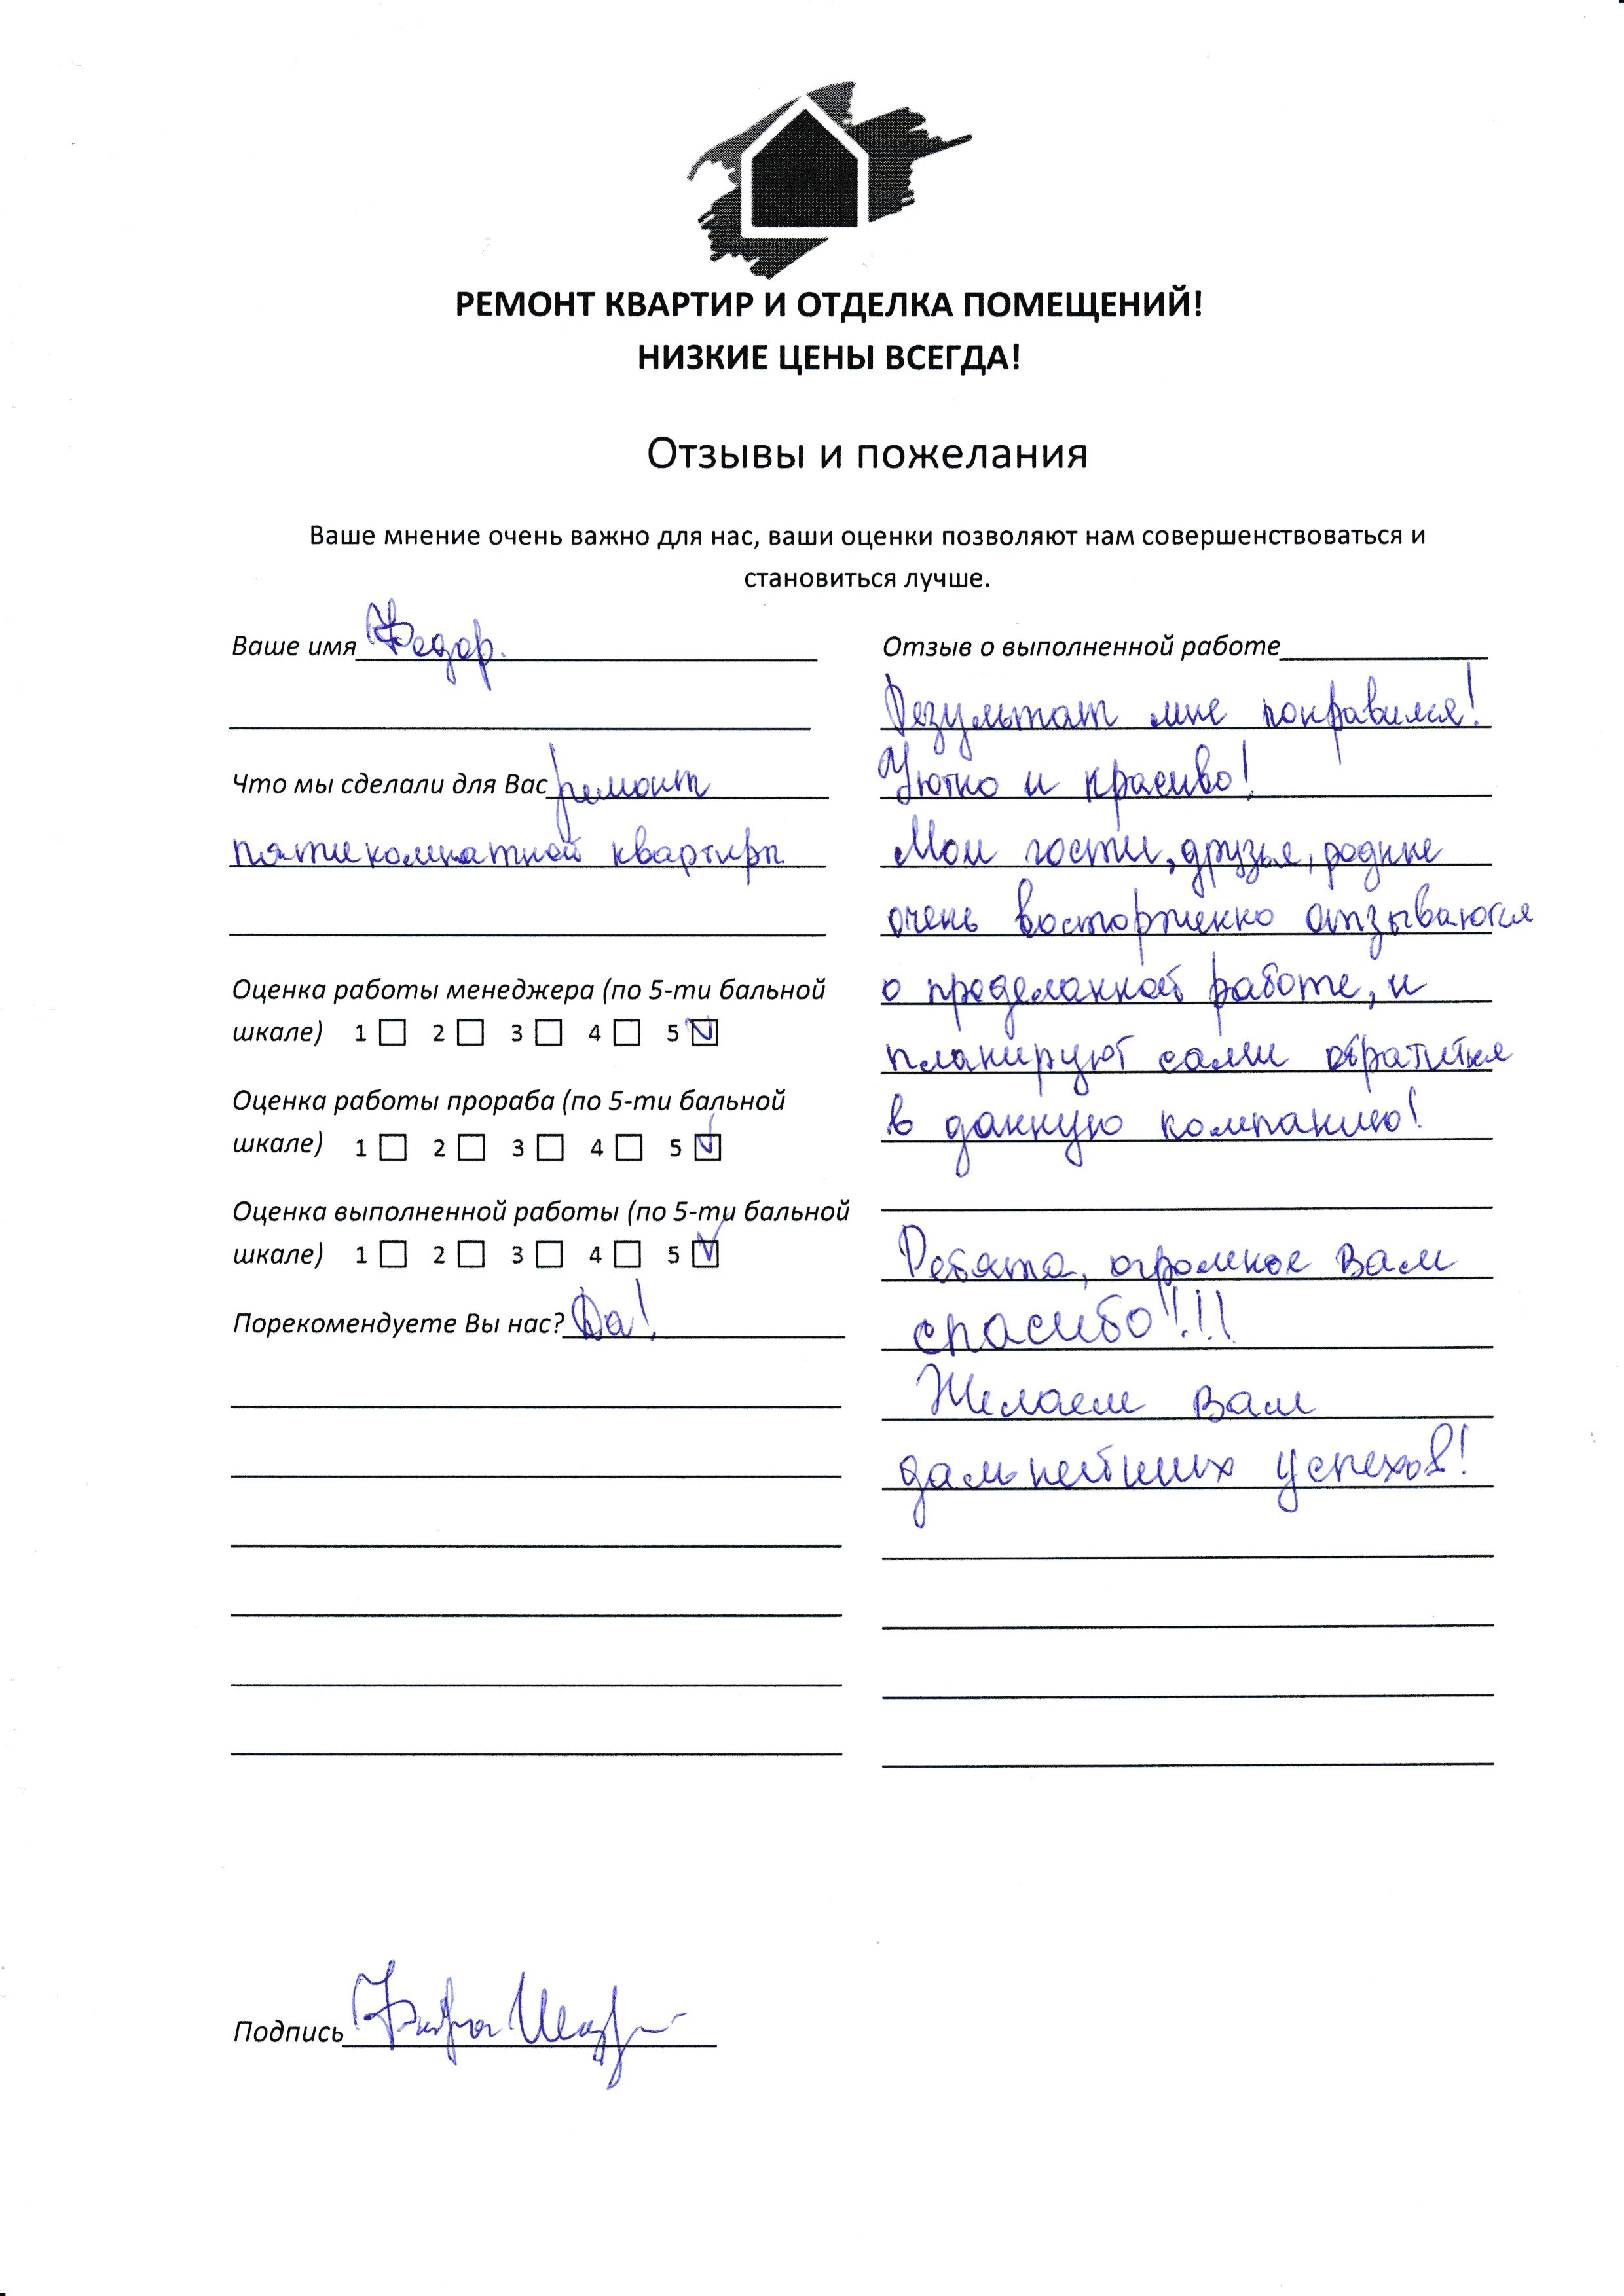 РЕМОНТ КВАРТИР И ОТДЕЛКА ПОМЕЩЕНИЙ!
НИЗКИЕ ЦЕНЫ ВСЕГДА!
Отзывы и пожелания
Ваше мнение очень важно для нас, ваши оценки позволяют нам совершенствоваться и
становиться лучше.
Ваше имя Федор.
Что мы сделали для Вас ремонт
пятикомнатной квартиры
Оценка работы менеджера (по 5-ти бальной
шкале) 1 2 3 4 5
Оценка работы прораба (по 5-ти бальной
шкале) 1 2 3 4 5
Оценка выполненной работы (по 5-ти бальной
шкале) 1 2 3 4 5
Порекомендуете Вы нас? Да!
Отзыв о выполненной работе
Результат мне понравился!
Уютно и красиво!
Мои гости, друзья, родные
очень восторженно отзываются
о проделанной работе, и
планируют сами обратиться
в данную компанию!
Ребята, огромное Вам
спасибо!!!
Желаем Вам
дальнейших успехов!
Подпись